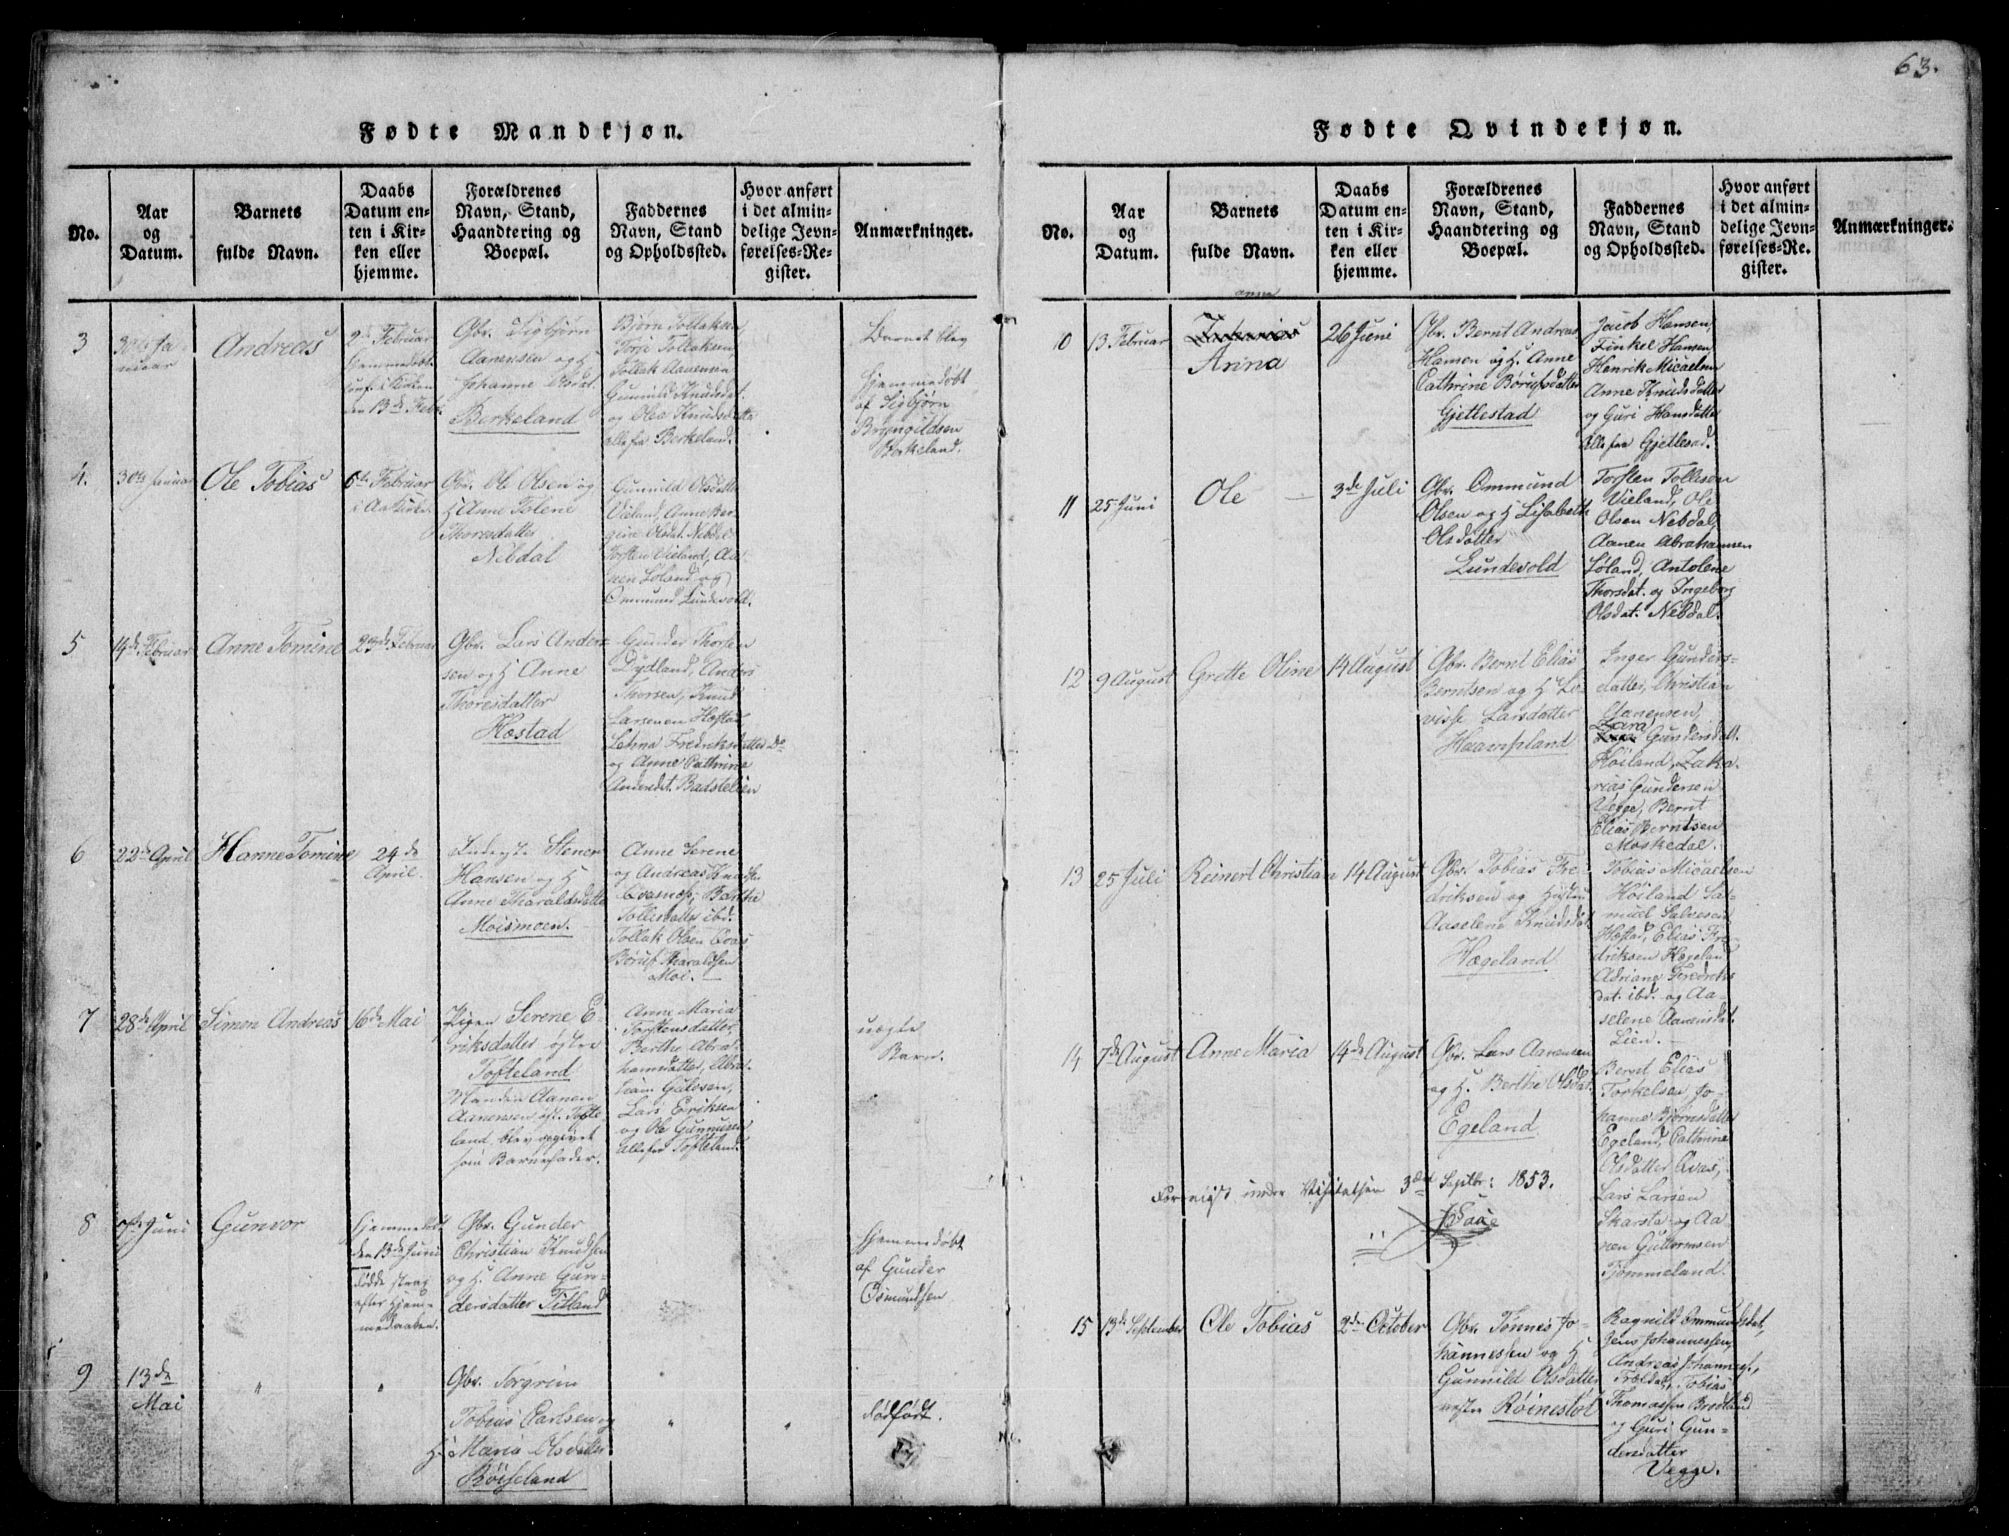 63.
Fødte Mandkjøn.
No.
Aar
og
Datum.
Barnets
fulde Navn.
Daabs
Datum en-
ten i Kir-
ken eller
hjemme.
Forældrenes
Navn, Stand,
Haandtering og
Boepæl.
Faddernes
Navn, Stand
og Opholdssted.
Hvor anført
i det almin-
delige Jevn-
førelses-Re-
gister.
Anmærkninger.
3
Andreas
2de Februar
hjemmedøbt
den 13de Febr
Gbr. Sigbjørn
Aanensen og H
Johanne Olsdat.
Berkeland
Bjørn Tollaksen,
Torje Tollaksen,
Tollak Aanensen
Gunnild Knudsdat.
og Olea Knudsdatter
alle fra Berkeland.
Barnet blev
hjemmedøbt
af Sigbjørn
Bryngildsen
Berkeland.
4.
30te Januar
Ole Tobias
6te Februar
Gbr. Ole Olsen og
H Anne Tolene
Thoresdatter
Nebdal
Gunnild Olsdatter
Vieland, Anne Ber-
gine Olsdat. Nebdal
Torsten Vieland, Aa-
nen Løland og
Ommund Lundevold.
5
14de Februar
Anne Tomine
Februar
Gbr. Lars Anders-
sen og H Anne
Thoresdatter
Høstad
Gunder Thorsen
Dydland, Anders
Thorsen, Knud
Larsen Høstad
Fredriksdatter Do
og Anne Cathrine
Andersdat. Badstelien
6
22de April
Hanne Tomine
24de
April.
Stener
Hansen og H
Anne Tharaldsdatter
Moismoen.
Anne Serene
og Andreas
Berthe
Tollevsdatter ibd.
Tollak Olsen
Børuf Tharaldsen
Moi.
7
28de April
Simon Andreas
16de Mai
Pigen Serene E-
riksdatter østre
Tofteland
Aanen
Aanensen øst. Tofte-
land blev opgivet
som Barnefader.
Anne Maria
Torstensdatter,
Berthe Abra-
hamsdatter, Abra-
ham Guldsen,
Lars Eriksen
og Ole Gunnusen
alle fra Tofteland
uægte
Barn.
8
7de Juni
Gunvor
Hjemmedøbt
den 13de Juni
døde strax
efter Hjem-
medaaben.
Gbr. Gunder
Christian Knudsen
og H. Anne Gun-
dersdatter Titland
Hjemmedøbt
af Gunder
Osmundsen
9
13de
Mai
"
"
Gbr. Torgrim
Tobias Carlsen og
H. Maria Olsdatter
Røiseland
"
"
dødfødt.
Fødte Qvindekjøn.
No.
Aar
og
Datum.
Barnets
fulde Navn.
Daabs
Datum en-
ten i Kir-
ken eller
hjemme.
Forældrenes
Navn, Stand,
Haandtering og
Boepæl.
Faddernes
Navn, Stand
og Opholdssted.
Hvor anført
i det almin-
delige Jevn-
førelses-Re-
gister.
Anmærkninger.
10
13 Februar
Anna
26 Juni
Gbr. Bernt Andreas
Hansen og H. Anne
Cathrine Børufsdatter
Gjetlestad
Jacob Hansen,
Finkel Hansen
Henrik Micaelsen
Anne Knudsdatter
og Guri Hansdatter
alle fra Gjetlestad.
11
25 Juni
Ole
3de Juli
Gbr. Ommund
Olsen og H Lisabeth
Olsdatter
Lundevold
Torsten Tollefsen
Vieland, Ole
Olsen Nebdal,
Aanen Abrahamsen
Løland, Antolene
Thorsdat. og Ingeborg
Olsdat. Nebdal.
12
9 August
Grethe Oline
14 August
Gbr. Bernt Elias
Berntsen og H Lo-
vise Larsdatter
Haampland
Inger Gunders-
datter, Christian
Aanensen,
Sara
Gundersdatt.
Høiland, Zaka-
rias Gundersen
Vegge, Bernt
Elias Berntsen
Moskedal.
13
25 Juli
Reinert Christian
14 August
Gbr. Tobias Fre-
driksen og Hustru
Aaselene Knudsdat.
Hægeland
Tobias Micaelsen
Høiland Sa-
muel Salvesen
Høstad, Elias Fre-
driksen Hægeland
Adriane Fredriks
dat. ibd. og Aa-
selene Aanensdat.
Lien.
14
7de August
Anne Maria
14de August
Gbr. Lars Aanensen
og H. Berthe Olsdat.
Egeland
Bernt Elias
Torkelsen Jo-
hanne Bjørnsdatter
Egeland, Cathrine
Olsdatter Qvas,
Lars Larsen
Skarsta og Aa
nen Guttormsen
Tjommeland.
Foreviist under Visitatsen 3die Septbr: 1853.
15
13de September
Ole Tobias
2de October
Gbr. Tønnes Jo-
hannessen og H
Gunnild Olsdatter
vestre Røinestøl
Ragnild Ommundsdat,
Jens Johannessen,
Andreas Johannes.,
Trældal, Tobias
Thomassen Bredland
og Guri Gun-
dersdatter
Vegge.